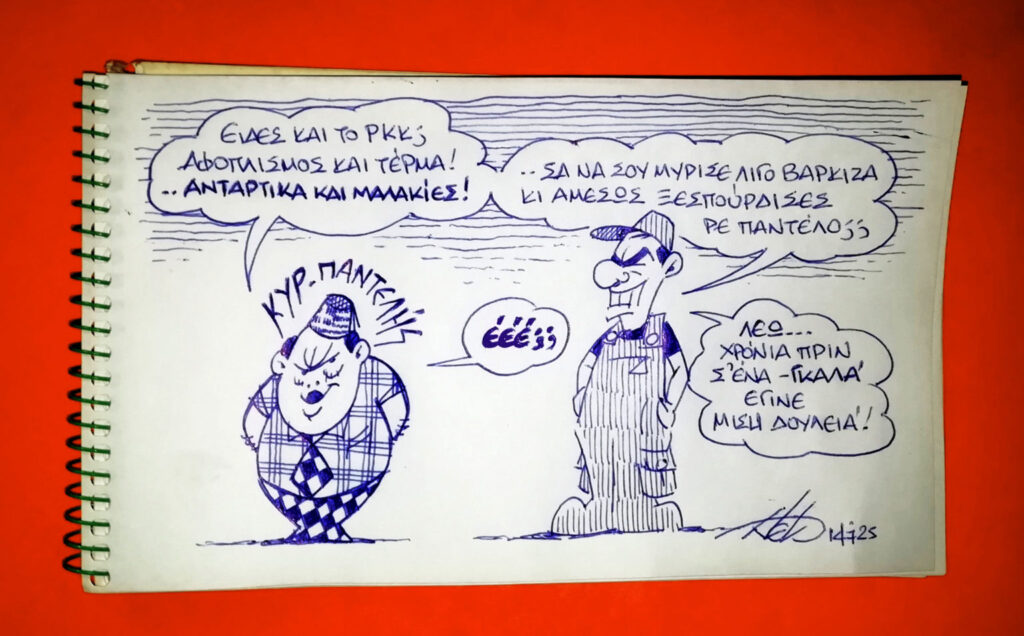 ΕΙΔΕΣ ΚΑΙ ΤΟ ΡΚΚ;
ΑΦΟΠΛΙΣΜΟΣ ΚΑΙ ΤΕΡΜΑ!
..ΑΝΤΑΡΤΙΚΑ ΚΑΙ ΜΑΛΑΚΙΕΣ!
..ΣΑ ΝΑ ΣΟΥ ΜΥΡΙΣΕ ΛΙΓΟ ΒΑΡΚΙΖΑ
ΚΙ ΑΜΕΣΩΣ ΞΕΣΠΟΥΡΔΙΣΕΣ
ΡΕ ΠΑΝΤΕΛΟ;;
ΚΥΡ-ΠΑΝΤΕΛΗΣ
ΈΈΈ;;
ΛΕΩ....
ΧΡΟΝΙΑ ΠΡΙΝ
Σ'ΕΝΑ -ΓΚΑΛΑ'
ΕΓΙΝΕ
ΜΙΣΗ ΔΟΥΛΕΙΑ'!
14725